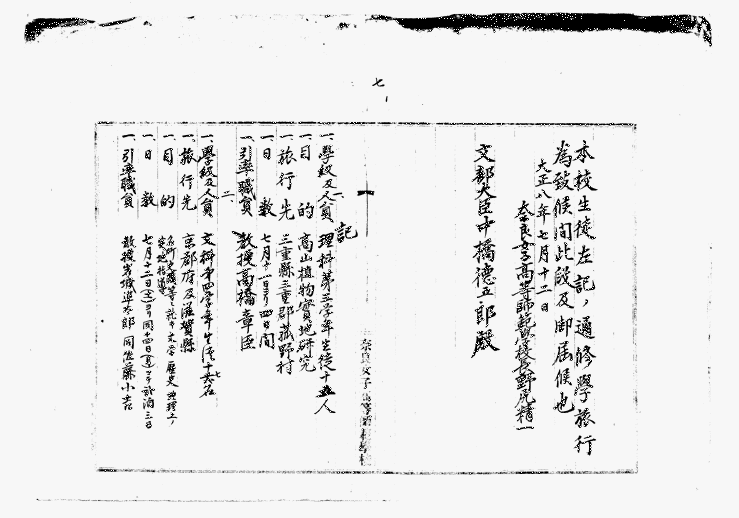 七
本校生徒左記ノ通修學旅行
為致候間此段及御届候也
大正八年七月十二日
奈良女子高等師範學校長野尻精一
文部大臣中橋德五郎殿
記
一、
一、學級及人員 理科第三學年生徒十五人
一、目的 高山植物實地研究
一、旅行先 三重縣三重郡菰野村
一、日數 七月十一日ヨリ四日間
一、引率職員 教授高橋章臣
二、
一、學級及人員 文科第四學年生徒十七名
一、旅行先 京都府及滋賀縣
一、目的 名所史蹟等ニ就キ文學歷史地理上ノ實地指導
一、日數 七月十二日(土)ヨリ同十四日(月)マデ 三日
一、引率職員 教授 同佐藤小吉
奈良女子高等師範學校